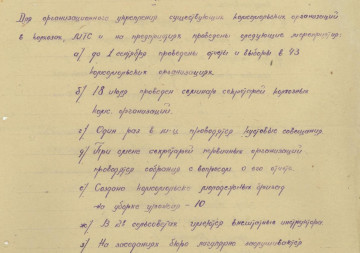 Для организационного укрепления существующих комсомольских организаций
в колхозах, МТС и на предприятиях проведены следующие мероприятия:
а/ до 1 сентября проведены отчеты и выборы в 43
комсомольских организациях.
б/ 18 июля проведен семинар секретарей колхозных
комс. организаций.
с/ Один раз в м-ц проводятся кустовые совещания.
д/ При смене секретарей первичных организаций
проводятся собрания с вопросом о его отчете.
е/ Создано комсомольско молодежных бригад
по уборке урожая - 10
ж/ В 28 сельсоветах имеются внештатные инструктора
з/ На заседаниях бюро